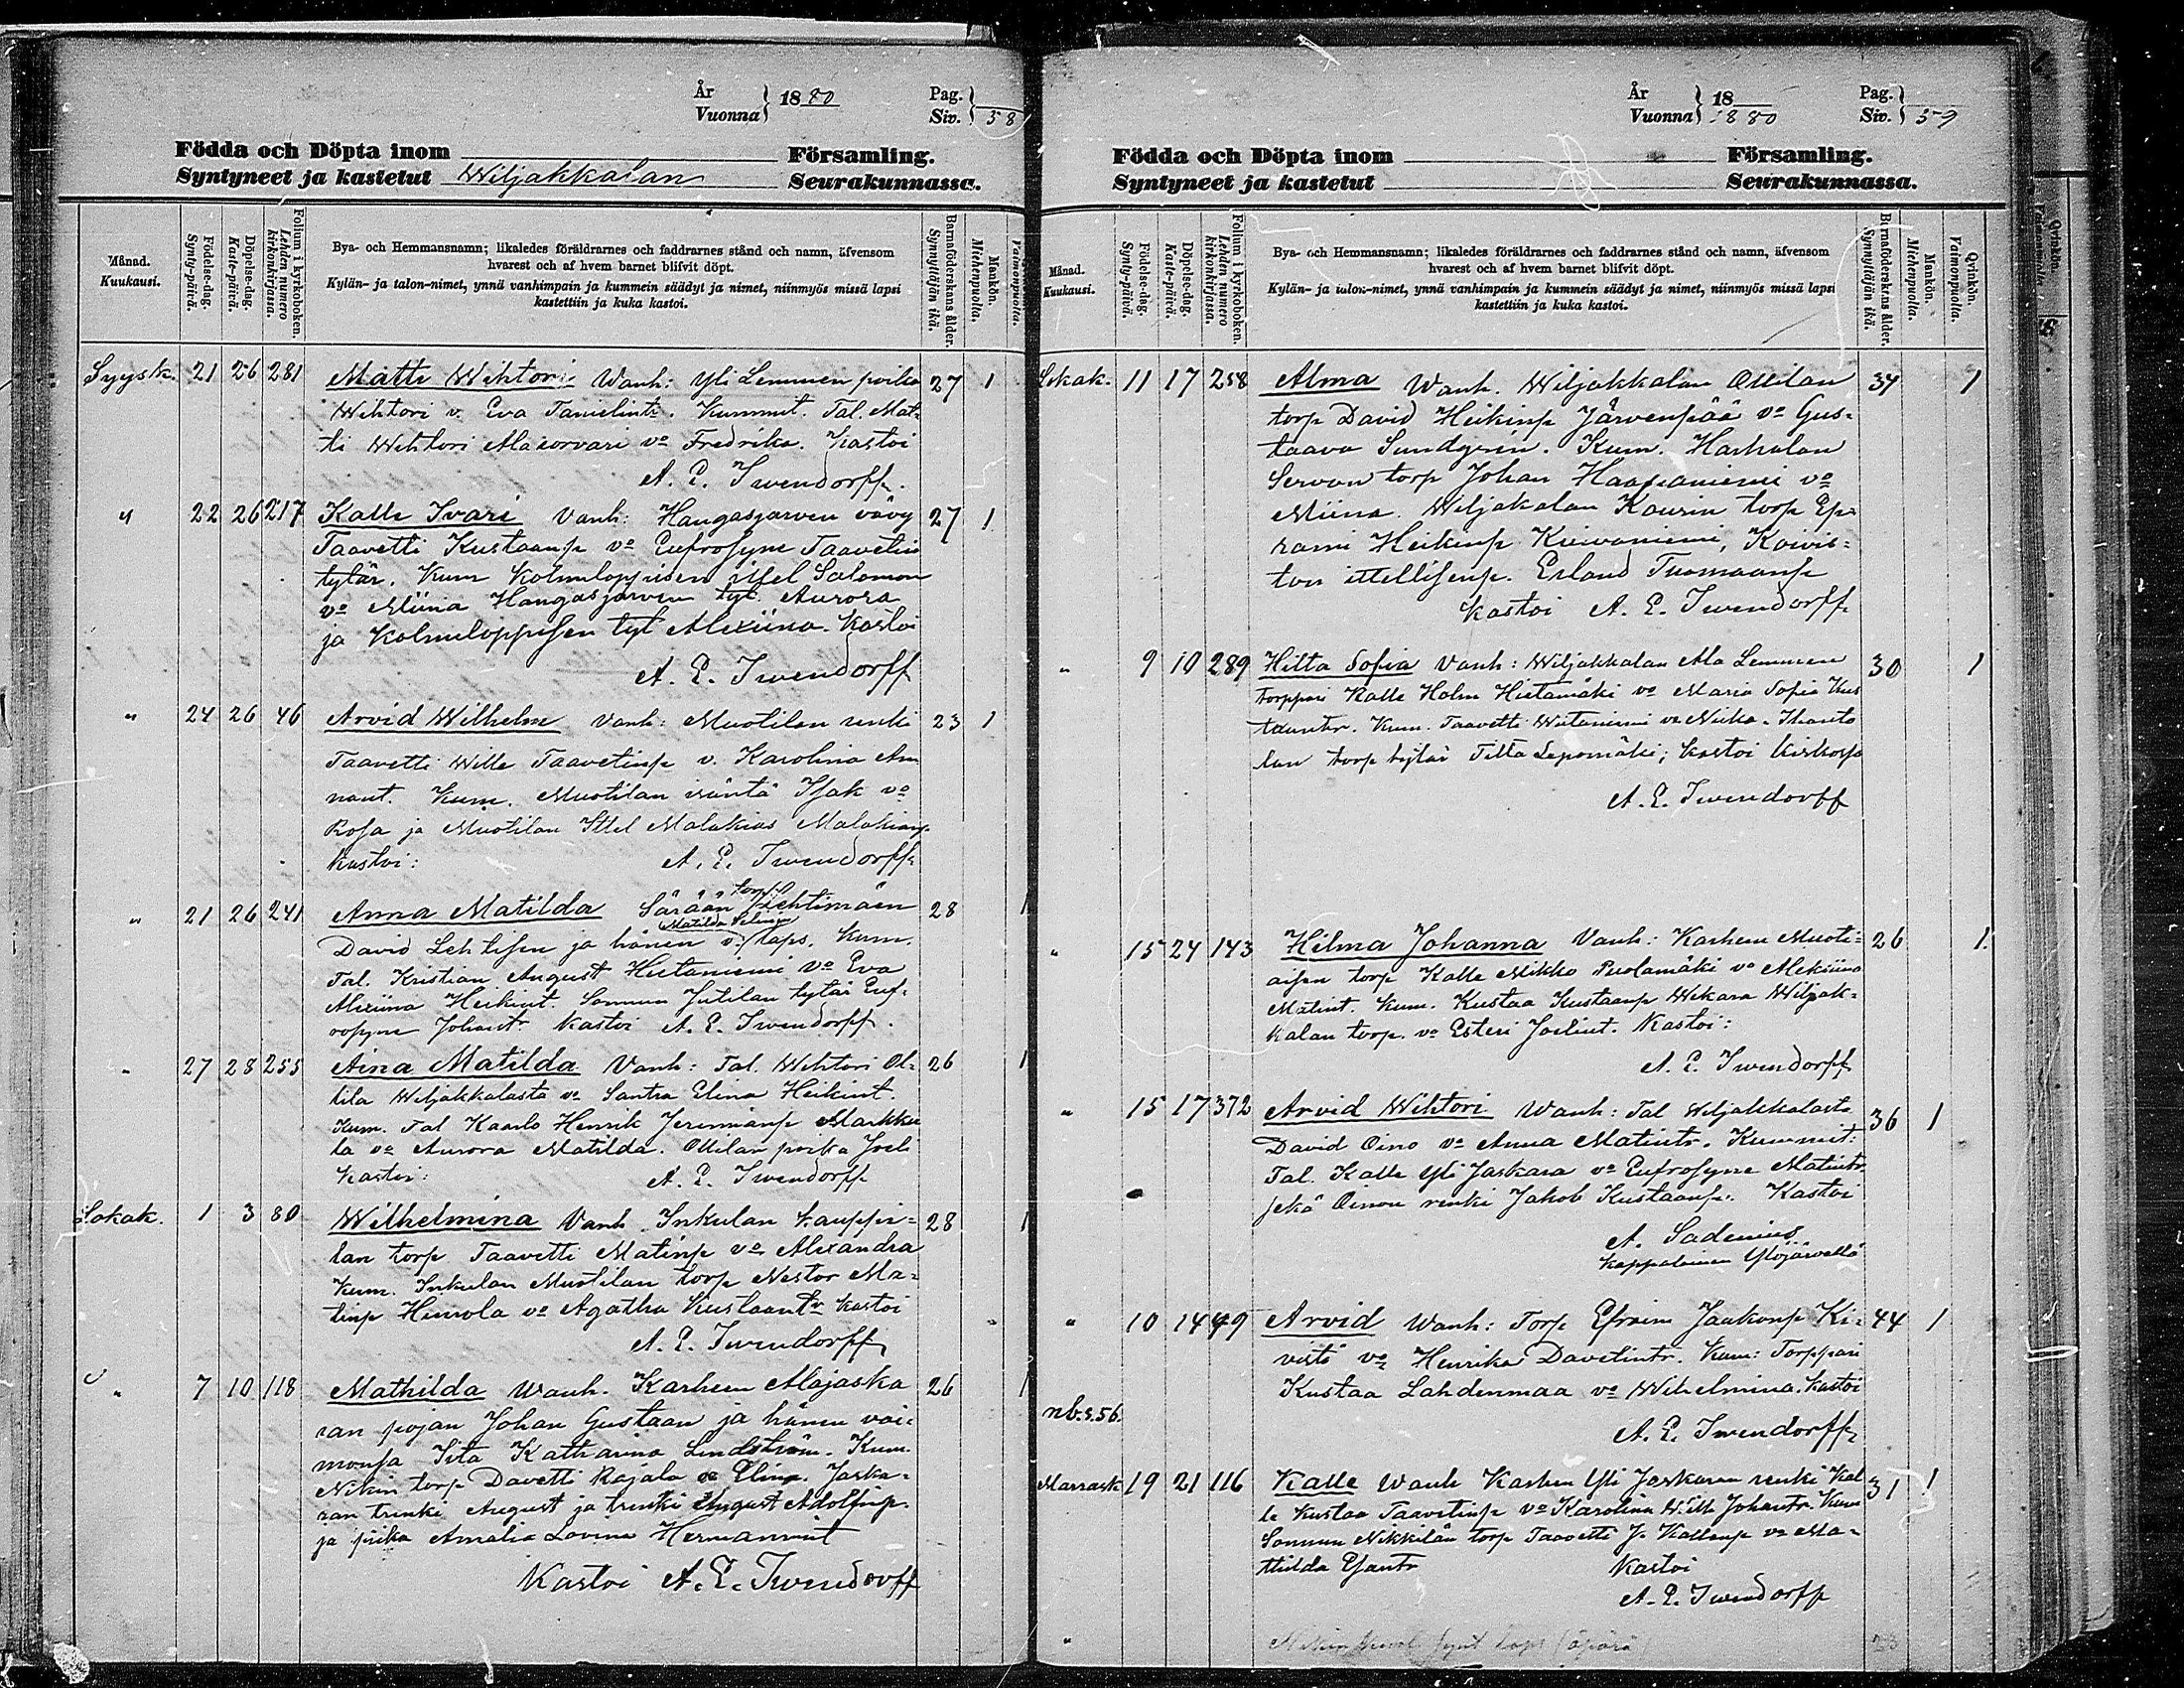 År
Vuonna } 1880
Pag.
Siv. } 58
Födda och Döpta inom Församling.
Syntyneet ja kastetut Wiljakkalan Seurakunnassa.
Månad.
Kuukausi.
Födelse-dag.
Synty-päivä.
Döpelse-dag.
Kaste-päivä.
Folium i kyrkoboken.
Lehden numero kirkonkirjassa.
Bya- och Hemmansnamn; likaledes föräldrarnes och faddrarnes stånd och namn, äfvensom
hvarest och af hvem barnet blifvit döpt.
Kylän- ja talon-nimet, ynnä vanhimpain ja kummein säädyt ja nimet, niinmyös missä lapsi
kastettiin ja kuka kastoi.
Barnaföderskans ålder.
Synnyttäjän ikä.
Mankön.
Miehenpuolia.
Vaimonpuolia.
Syysk. 21 26 281 Matti Wihtori Wanh: Yli Lemmen poika 27 1
Wihtori v. Eva Tanielintr. Kummit. Tal. Mat-
ti Wihtori vo Fredrika. Kastoi
A. E. Iwendorff.
" 22 26 217 Kalle Ivari Vanh: Hangasjarven vävy 27 1
Taavetti Kustaanp vo Eufrosyne Taavetin
tytär. Kum Kolmiloppisen ittel Salomon
vo Miina Hangasjarven tyt. Aurora
ja Kolmiloppisen tyt Alexiina. Kastoi
A. E. Iwendorff
" 24 26 46 Arvid Wilhelm Vanh: Muotilan renki 23 1
Taavetti Wille Taavetinp v. Karolina An
naut. Kum. Muotilan isäntä Isak vo
Rosa ja Muotilan Ittel Malakias Malakianp.
Kastoi: A. E. Iwendorff
" 21 26 241 Anna Matilda Särään torp Lehtimäen 28 1
Matilda Selinin
David Lehtisen ja hänen v. laps. Kum.
Tal. Kristian August Hietaniemi vo Eva
Alexiina Heikint. Sonnun Jutilan tytär Euf-
rosyne Johantr Kastoi A. E. Iwendorff.
" 27 28 255 Aina Matilda Vanh: Tal. Wihtori Ol- 26 1
lila Wiljakkalasta vo Santra Elina Heikint.
Kum. Tal Kaarlo Henrik Jeremianp Markku
la vo Aurora Matilda. Ollilan poika Joeli
Kastoi: A. E. Iwendorff
Lokak. 1 3 80 Wilhelmina Vanh. Inkulan Kauppi- 28 1
lan torp Taavetti Matinp vo Alexandra
Kum. Inkulan Muotilan torp Nestor Ma-
tinp vo Agatha Kustaantr Kastoi
A. E. Iwendorff
" 7 10 118 Mathilda Wanh. Karhen Alajaska 26 1
ran pojan Johan Gustaan ja hänen vai-
monsa Iita Katharina Lindström. Kum.
Nikin torp Davetti Rajala vo Elina. Jaska-
ran trenki August ja trenki August Adolfinp.
ja piika Amalia Lovina Hermannint
Kastoi A. E. Iwendorff
År
Vuonna } 18 1880
Pag.
Siv. } 59
Födda och Döpta inom Församling.
Syntyneet ja kastetut Seurakunnassa.
Månad.
Kuukausi.
Födelse-dag.
Synty-päivä.
Döpelse-dag.
Kaste-päivä.
Folium i kyrkoboken.
Lehden numero kirkonkirjassa.
Bya- och Hemmansnamn; likaledes föräldrarnes och faddrarnes stånd och namn, äfvensom
hvarest och af hvem barnet blifvit döpt.
Kylän- ja talon-nimet, ynnä vanhimpain ja kummein säädyt ja nimet, niinmyös missä lapsi
kastettiin ja kuka kastoi.
Barnaföderskans ålder.
Synnyttäjän ikä.
Mankön.
Miehenpuolia.
Qvinkön.
Vaimonpuolia.
Lokak. 11 17 258 Alma Wanh. Wiljakkalan Ollilan 34 1
torp David Heikinp Järvenpää vo Gus-
taava Sundgrén. Kum. Harhalan
Servon torp Johan Haapaniemi vo
Miina. Wiljakalan Kourin torp Ep-
rami Heikinp Kiivaniemi, Koivis-
ton ittellisenp. Erland Tuomaanp
Kastoi A. E. Iwendorff
" 9 10 289 Hilta Sofia Vanh: Wiljakkalan Ala Lemmen 30 1
torppari Kalle Holm Hietamäki vo Maria Sofia Kus
taantr. Kum. Taavetti Wiitaniemi vo Miika.
lan torp tytär Tilta Lepomäki; kastoi Kirkossa
A. E. Iwendorff
" 15 24 143 Hilma Johanna Vanh: Karhen Muoti- 26 1
aisen torp Kalle Mikko Puolamäki vo Alexiina
Matint. Kum. Kustaa Kustaanp Wekara Wiljak-
kalan torp. vo Esteri Joelint. Kastoi:
A. E. Iwendorff
" 15 17 372 Arvid Wihtori Wanh: Tal Wiljakkalasta 36 1
David Oino vo Anna Matintr. Kummit:
Tal. Kalle Yli Jaskara vo Eufrosyne Matintr.
sekä Oinon renki Jakob Kustaanp. Kastoi
A. Sadenius
Kappalainen Ylöjärvellä
" 10 14 49 Arvid Wanh: Torp Efraim Jaakonp Ki- 44 1
vistö vo Henrika Davetintr. Kum: Torppari
Kustaa Lahdenmaa vo Wilhelmina. Kastoi
nb. s. 56.
A. E. Iwendorff
Marrask 19 21 116 Kalle Wanh Karhen Yli Jaskaran renki Kal 31 1
le Kustaa Taavetinp vo Karolina Wilh Johantr. Kum
Sonnun Nikkilän torp Taavetti J. Kallenp vo Ma-
thilda Esantr Kastoi
A. E. Iwendorff
" synt laps (äpärä) 23